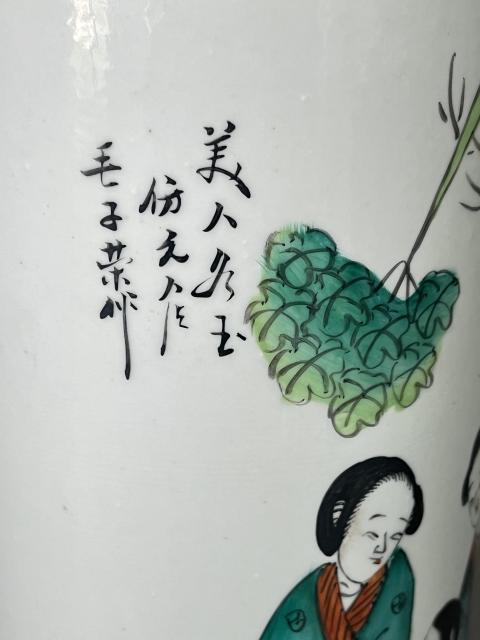 美人如玉
仿元人法
毛子荣作